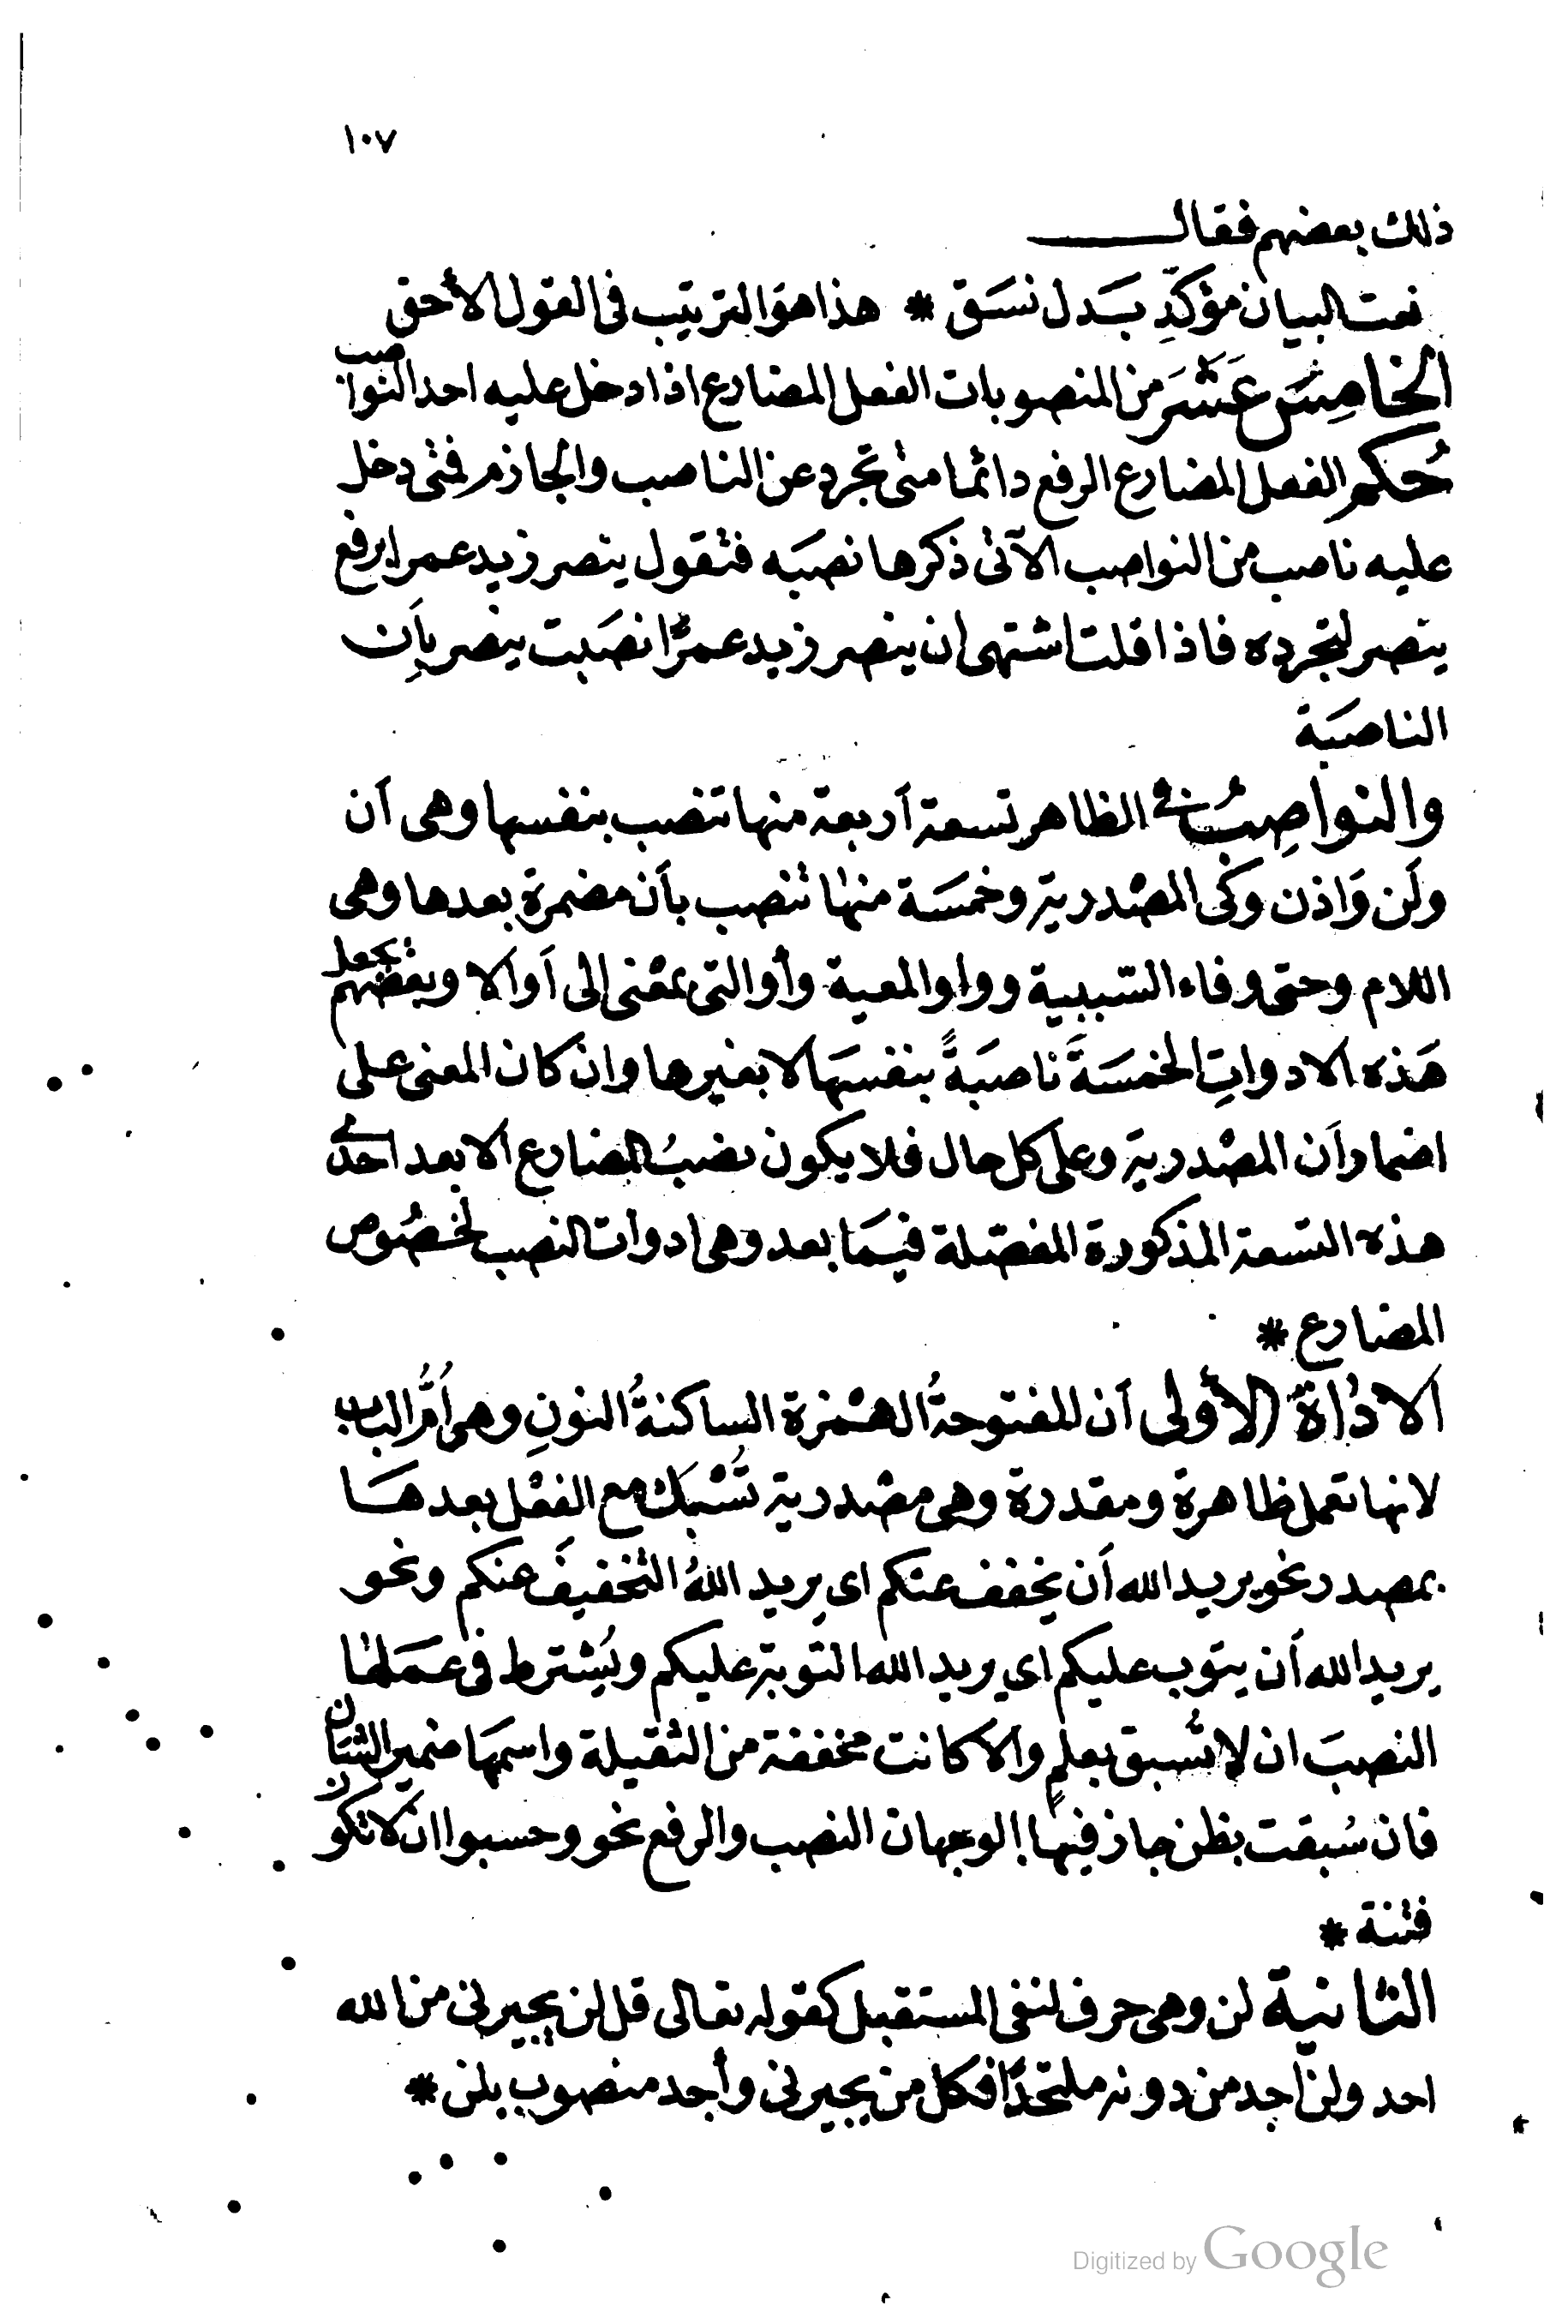 ١٠٧
ذلك بعضهم فقال
نعت البيان مؤكدِّ بَدل نسَق * هذا هوَ الترتيب فى القول الأحق
الخامِسَ عَشَرَ من المنصوبات الفعل المضارع اذا دخل عليه احد النواصب
حُكم الفعل المضارع الرفع دائما متى تجرد عن الناصب والجازم فمتى دخل
عليه ناصب من النواصب الآتى ذكرها نصبَه فتقول ينصر زيد عمرا برفع
ينصر لتجرده فاذا قلت اشتهى ان ينصر زيد عمرًا نصَبت ينصر بأَنِ
الناصبَة
والنواصِبُ فى الظاهر تسعة أربعة منها تنصب بنفسها وهى أن
ولَن وَاذن وكَى المصْدرية وخمسَة منها تنصب بأن مضمرة بعدها وهى
اللام وحتى وفاء السّببية وواو المعية وأو التى بمعْنى الى أو الا وبعْضهم يجعل
هَذه الادواتِ الخمسَةَ ناصبَةً بنفسَها لا بغيرها وان كان المعنى على
اضمار أن المصْدرية وعلى كل حال فلا يكون نصبُ المضارع الا بعد احدى
هذه التسعة المذكورة المفصّلة فيمَا بعد وهى ادوات النصب لخصُوص
المضارع *
الاداةُ الأولى أن المفتوحةُ الهمْزة الساكنةُ النونِ وهى أُمُّ الباب
لانها تعمل ظاهرة ومقدرة وهى مصْدرية تُسْبَك مع الفعْل بعدهَا
بمصدر نحو يريد الله أن يخفف عنكم اى يريد اللهُ التخفيفَ عنكم ونحو
يريد الله أن يتوب عليكم اي يريد الله التوبة عليكم ويُشترط فى عمَلها
النصبَ ان لا تُسبق بعلمٍ والا كانت مخففة من الثقيلة واسمهَا ضمير الشان
فان سُبقت بظن جاز فيها الوجهان النصب والرفع نحو وحسبوا ان لا تكون
فتنة *
الثانية لن وهى حرف لنفى المستقبل كقوله تعالى قل لن يجيرنى من الله
احد ولن أجد من دونه ملتحدًا فكل من يجيرنى وأجد منصوب بلن *
Digitized by Google